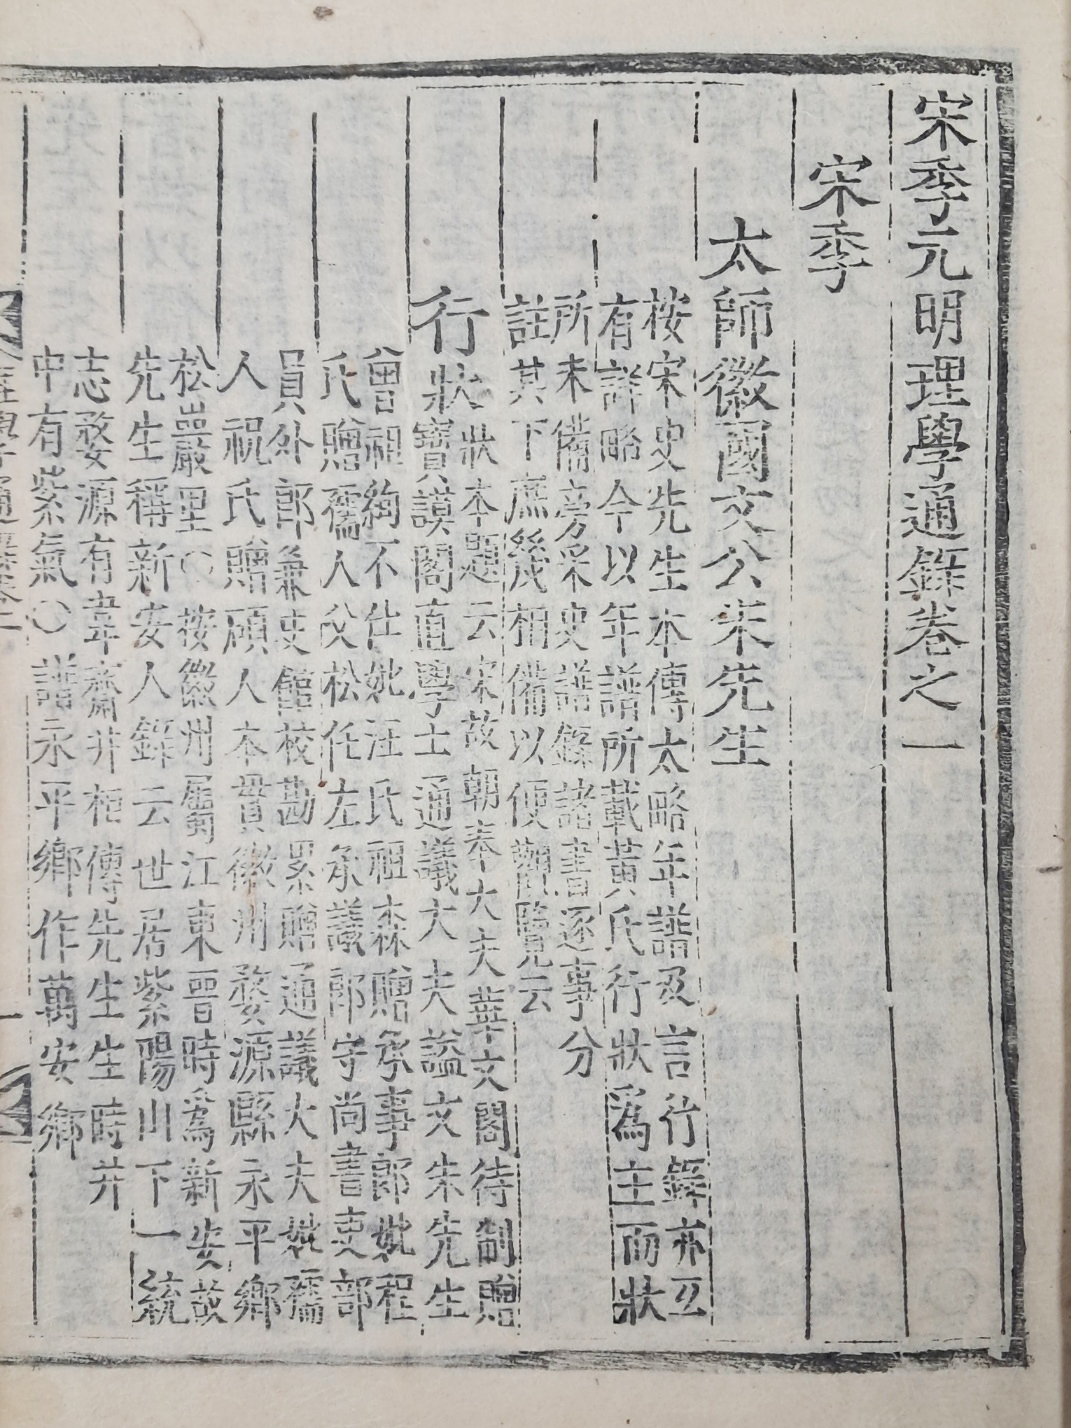 宋季元明理學通錄卷之一
宋季
太師徽國文公朱先生
按宋史先生本傳太略年譜及言行錄亦互
有詳略今以年譜所載黃氏行狀爲主而狀
所未備旁采史譜錄諸書逐事分
註其下庶幾相備以便觀覽云
行狀
狀本題云宋故朝奉大夫華文閣待制贈
寶謨閣直學士通議大夫謚文朱先生
曾祖絢不仕妣汪氏祖森贈承事郎妣程
氏贈孺人父松任左承議郎守尚書吏部
員外郎兼史館校勘累贈通議大夫妣孺
人祝氏贈碩人本貫徽州婺源縣永平鄉
松巖里〇按徽州屬江東晉時爲新安故
先生稱新安人錄云世居紫陽山下一統
志婺源有韋齋井相傳先生生時井
中有紫氣〇譜永平鄉作萬安鄉